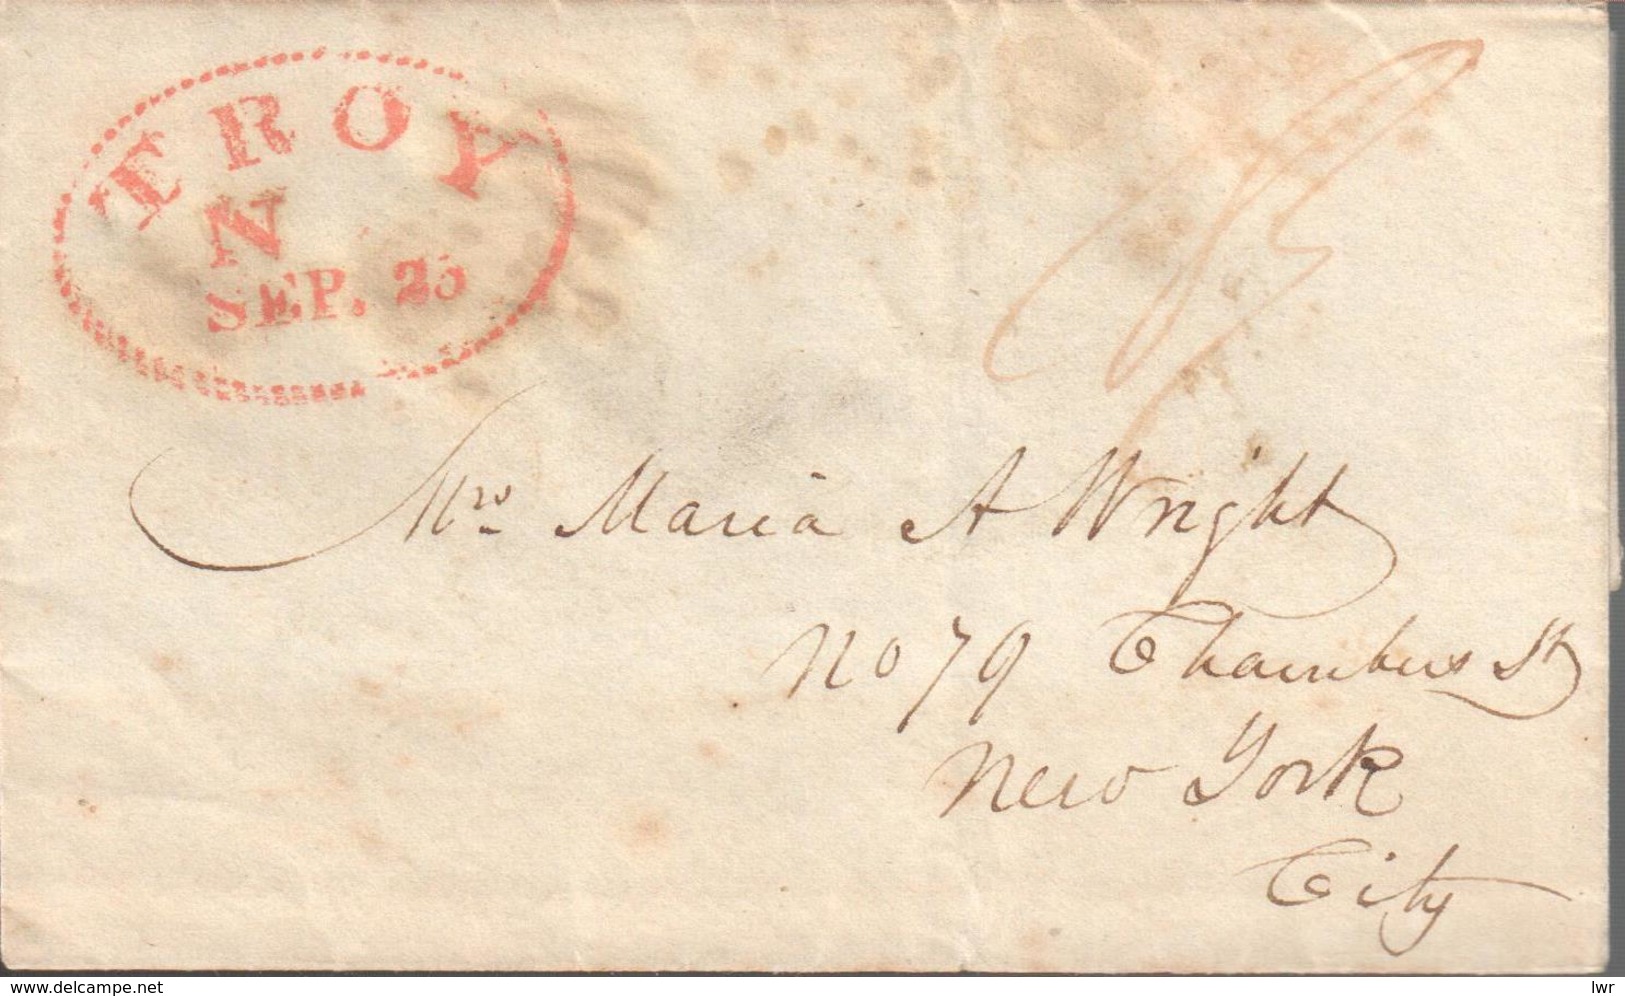 TROY
N
SEP. 25
Mrs. Maria A Wright
No 79 Chambers St
New York
City
© www.delcampe.net
lwr